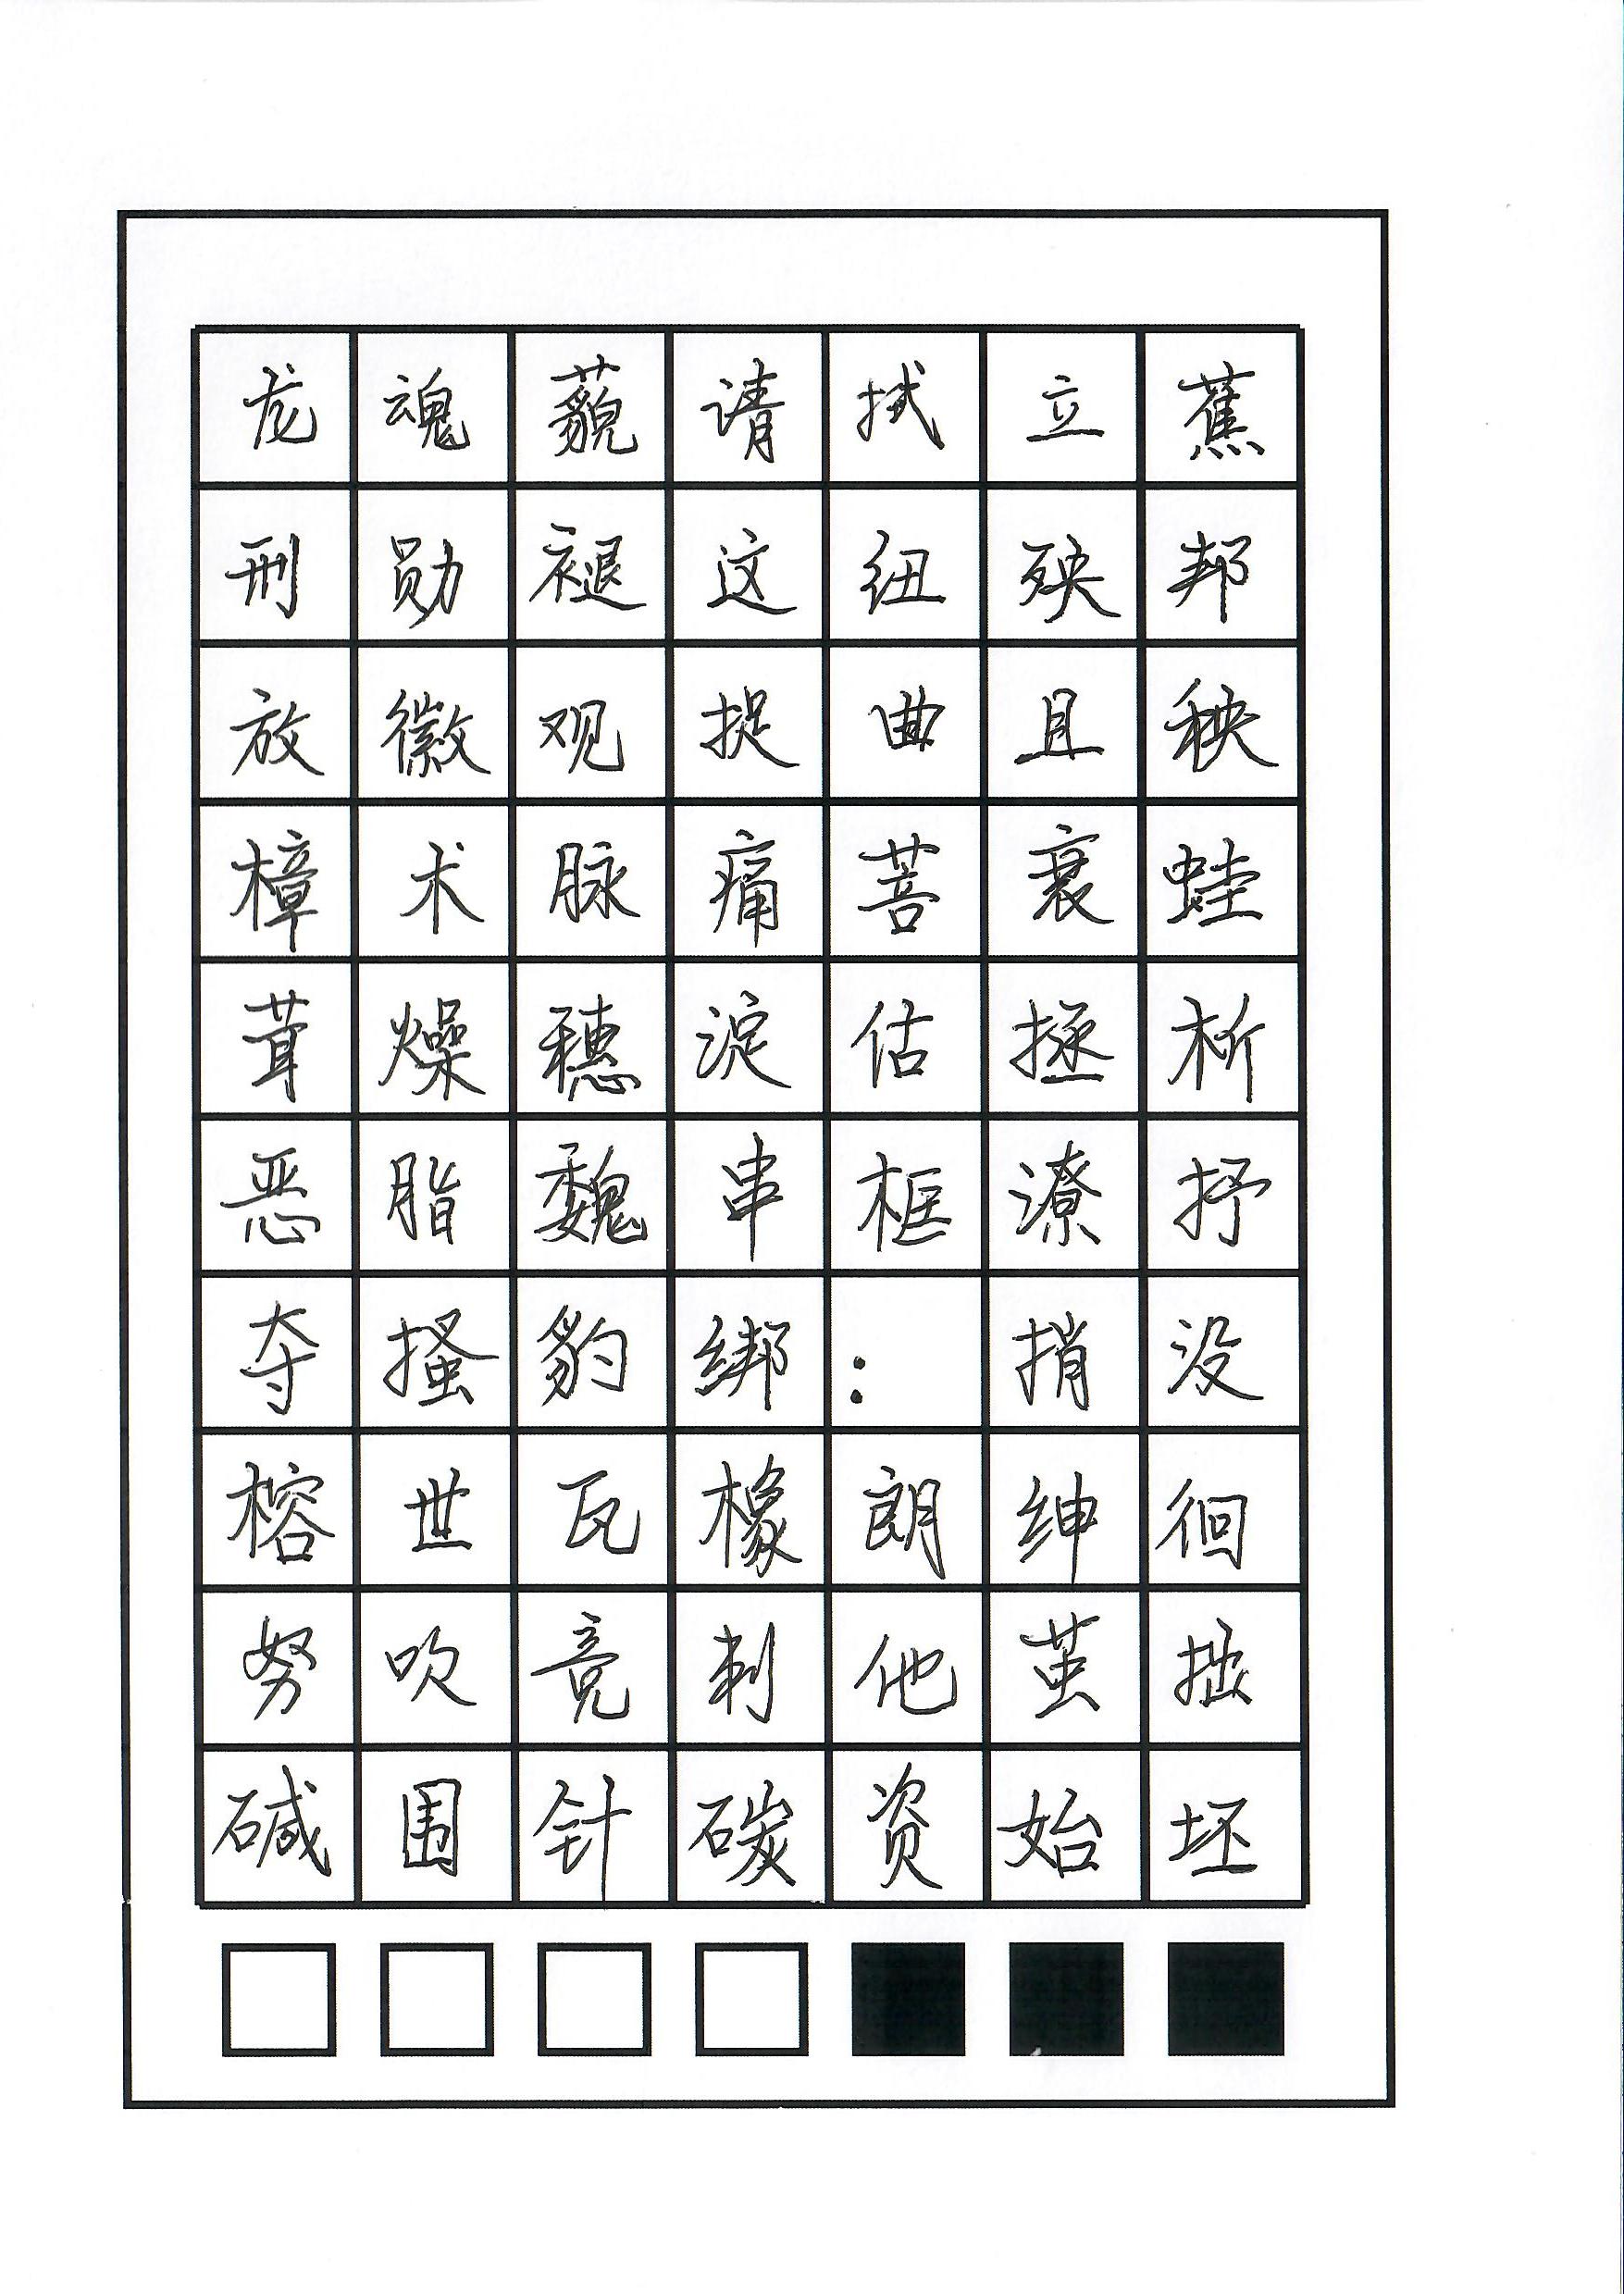 龙魂藐请拭立蕉
刑勋褪这纽殃邦
放徽观捉曲且秧
樟术脉痛菩衰蛙
茸燥穗淀估拯析
恶脂魏串框潦抒
夺搔豹绑：捎没
榕世瓦橡朗绅徊
努吹竟刺他茧拙
碱围针碳资始坯